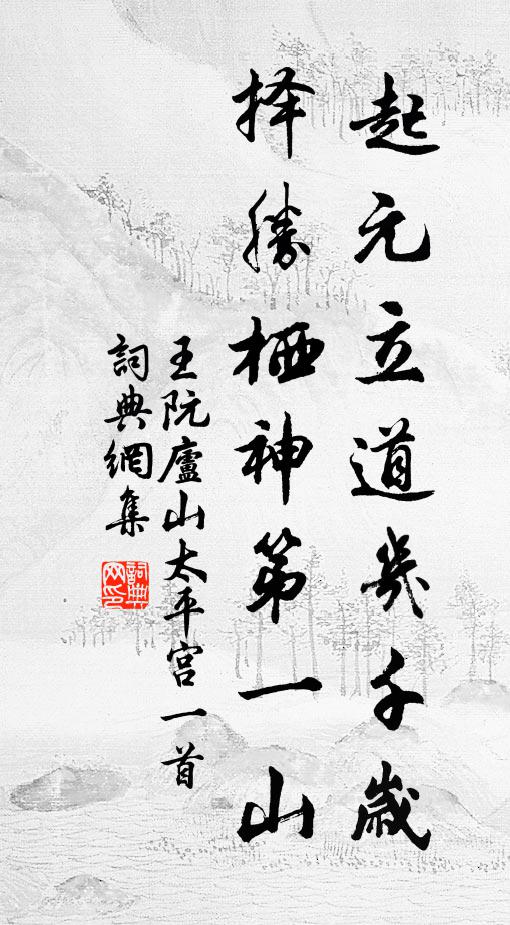 起元立道幾千歲
择勝栖神第一山
王阮廬山太平宫一首
詞典網集
詞典
网印